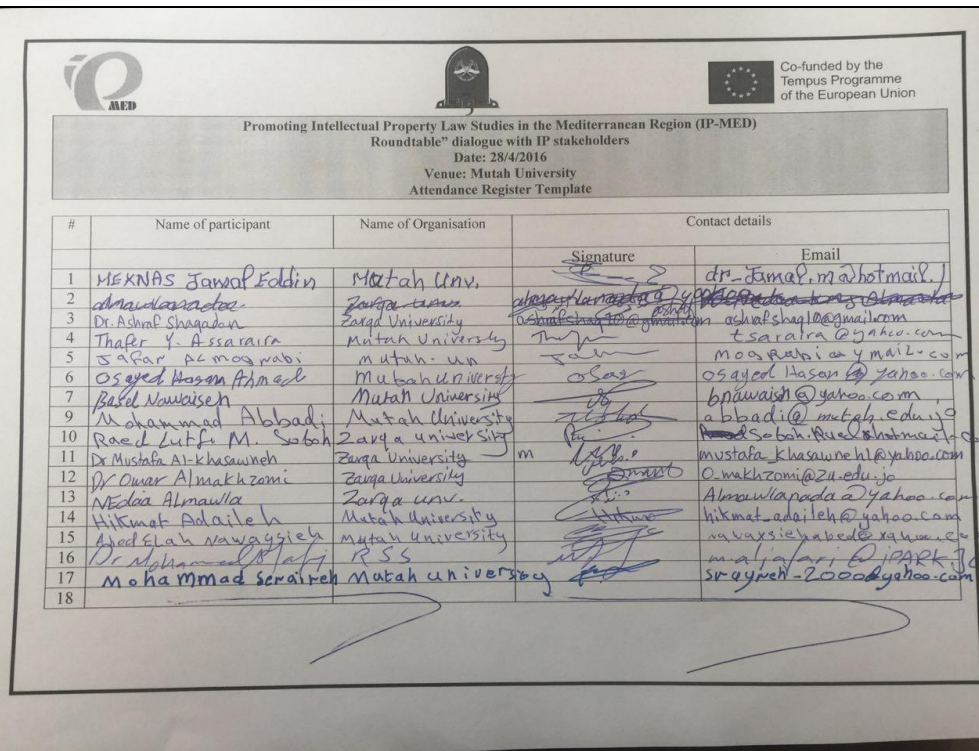 MED
Co-funded by the
Tempus Programme
of the European Union
Promoting Intellectual Property Law Studies in the Mediterranean Region (IP-MED)
Roundtable” dialogue with IP stakeholders
Date: 28/4/2016
Venue: Mutah University
Attendance Register Template
# Name of participant Name of Organisation Contact details
Signature Email
1 MEKNAS Jamal Eddin Mutah Unv. dr_Jamal.m@hotmail.
2 Zarqa
3 Dr. Ashraf Shaqadan Zarqa University ashrafshaq10@gmail.com ashrafshaq10@gmail.com
4 Thafer Y. Assaraira Mutah University tsaraira@yahoo.com
5 Jafar ALmograbi mutah. un mograbi@ymail.com
6 Osayed Hasan Ahmad Mutah University osayed Hasan@yahoo.com
7 Basel Nawaiseh Mutah University bnawaish@yahoo.com
9 Mohammad Abbadi Mutah University abbadi@mutah.edu.jo
10 Raed Lutfi M. Saboh Zarqa university
11 Dr Mustafa Al-khasawneh Zarqa University m mustafa_khasawneh1@yahoo.com
12 Dr Omar Almakhzomi Zarqa University O_makhzomi@zu.edu.jo
13 NEdaa Almawla Zarqa unv. Almawlanada@yahoo.com
14 Hikmat Adaileh Mutah University hikmat_adaileh@yahoo.com
15 Abed Elah Nawaysieh Mutah University
16 Dr Mohammed RSS
17 Mohammad Seraireh Mutah university srayreh-2000@yahoo.com
18